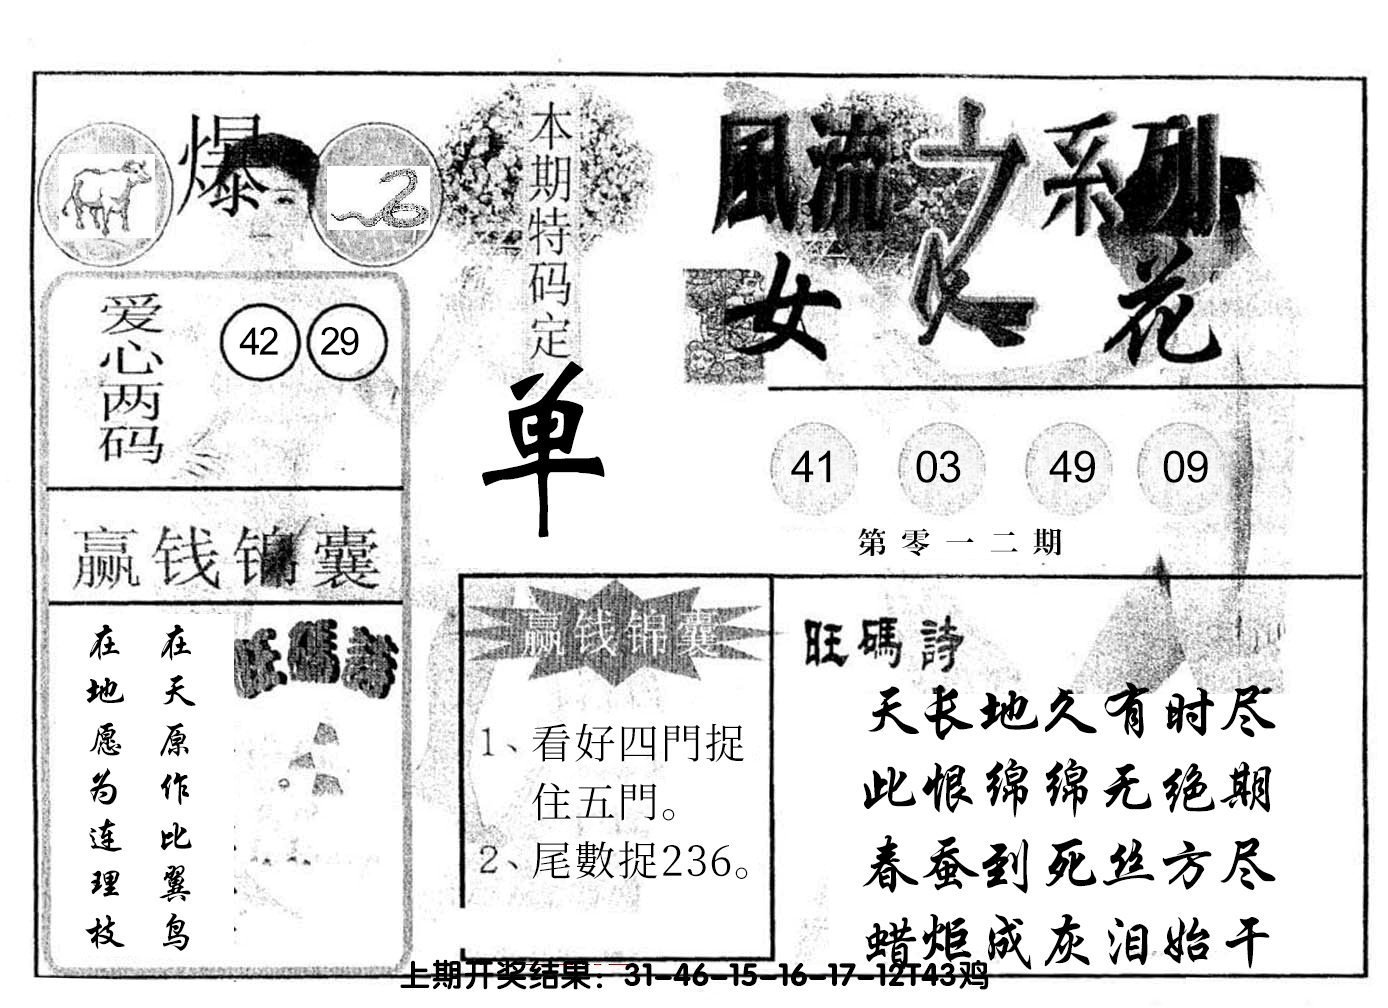 爆
本期特码定
单
風流之系列
女人花
爱心两码
42 29
41 03 49 09
第零一二期
赢钱锦囊
在天原作比翼鸟
在地愿为连理枝
旺碼詩
赢钱锦囊
1、看好四門捉
住五門。
2、尾數捉236。
旺碼詩
天长地久有时尽
此恨绵绵无绝期
春蚕到死丝方尽
蜡炬成灰泪始干
上期开奖结果：31-46-15-16-17-12T43鸡